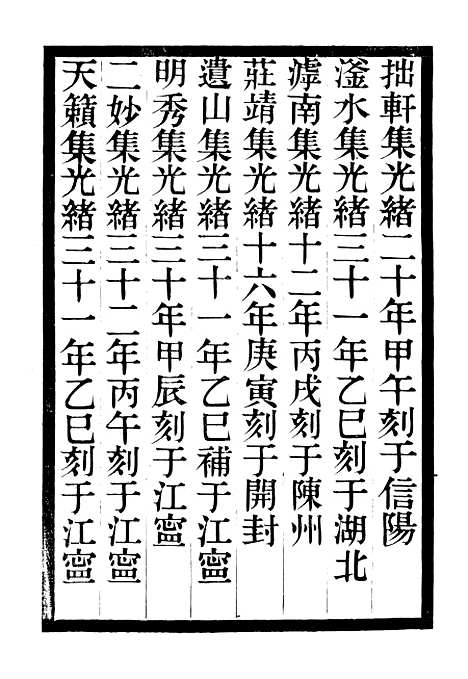 拙軒集光緒二十年甲午刻于信陽
滏水集光緒三十一年乙巳刻于湖北
滹南集光緒十二年丙戌刻于陳州
莊靖集光緒十六年庚寅刻于開封
遺山集光緒三十一年乙巳補于江寧
明秀集光緒三十年甲辰刻于江寧
二妙集光緒三十二年丙午刻于江寧
天籟集光緒三十一年乙巳刻于江寧